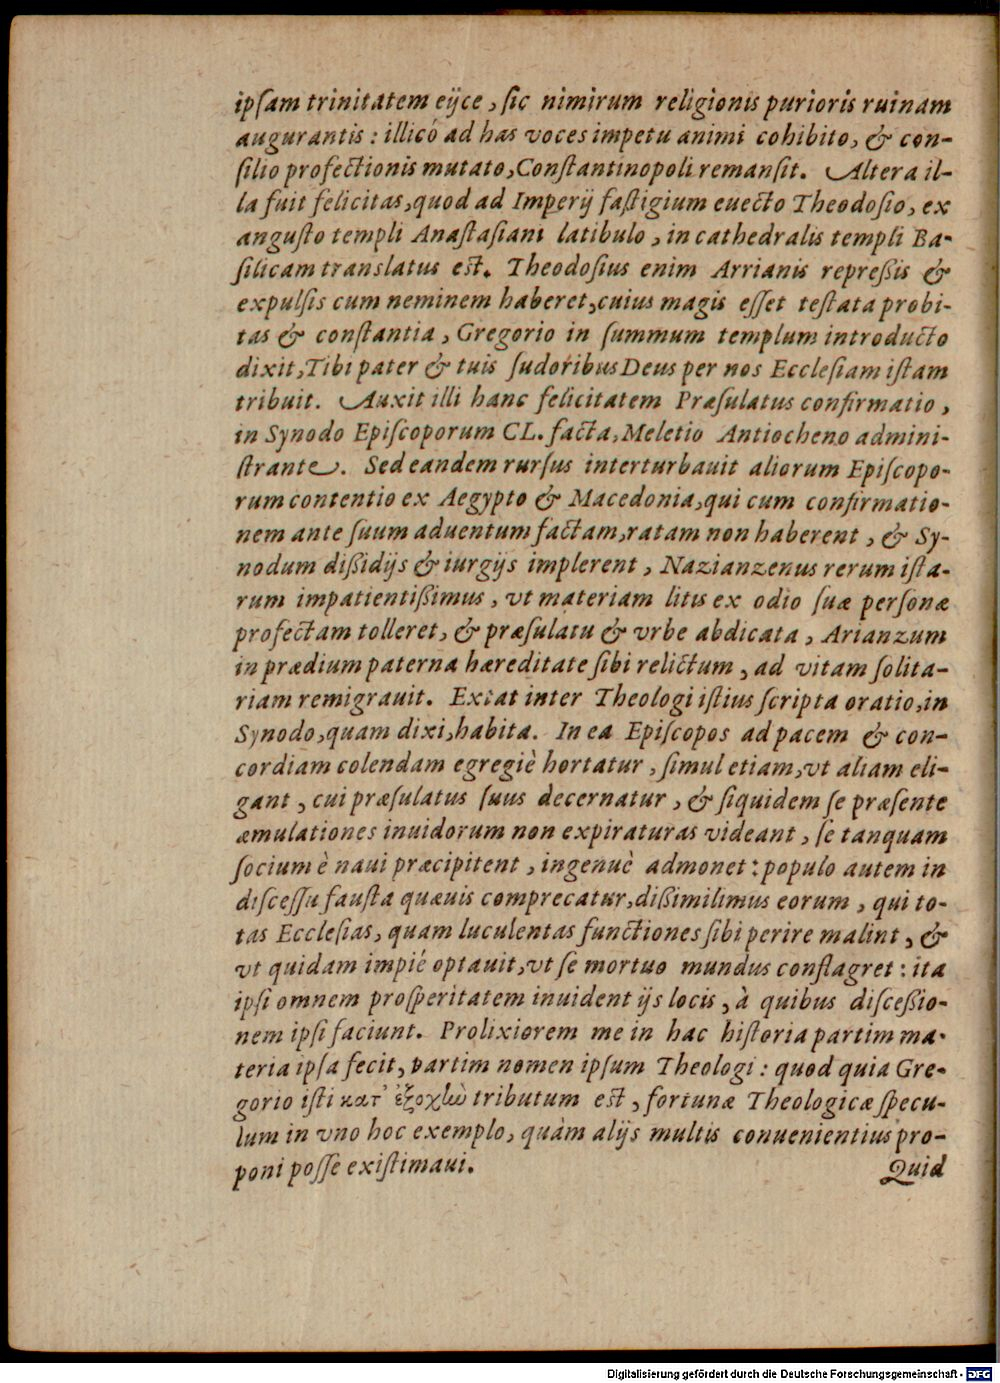 ipſam trinitatem eijce, ſic nimirum religionis purioris ruinam
augurantis: illicó ad has voces impetu animi cohibito, & con-
ſilio profectionis mutato, Conſtantinopoli remanſit. Altera il-
la fuit felicitas, quod ad Imperij faſtigium euecto Theodoſio, ex
anguſto templi Anaſtaſiani latibulo, in cathedralis templi Ba-
ſilicam translatus eſt. Theodoſius enim Arrianis repreßis &
expulſis cum neminem haberet, cuius magis eſſet teſtata probi-
tas & conſtantia, Gregorio in ſummum templum introducto
dixit, Tibi pater & tuis ſudoribus Deus per nos Eccleſiam iſtam
tribuit. Auxit illi hanc felicitatem Præſulatus confirmatio,
in Synodo Epiſcoporum CL. facta, Meletio Antiocheno admini-
ſtrante. Sed eandem rurſus interturbauit aliorum Epiſcopo-
rum contentio ex Aegypto & Macedonia, qui cum confirmatio-
nem ante ſuum aduentum factam, ratam non haberent, & Sy-
nodum dißidijs & iurgijs implerent, Nazianzenus rerum iſta-
rum impatientißimus, vt materiam litis ex odio ſuæ perſonæ
profectam tolleret, & præſulatu & vrbe abdicata, Arianzum
in prædium paterna hæreditate ſibi relictum, ad vitam ſolita-
riam remigrauit. Extat inter Theologi iſtius ſcripta oratio, in
Synodo, quam dixi, habita. In ea Epiſcopos ad pacem & con-
cordiam colendam egregiè hortatur, ſimul etiam, vt alium eli-
gant, cui præſulatus ſuus decernatur, & ſiquidem ſe præſente
æmulationes inuidorum non expiraturas videant, ſe tanquam
ſocium è naui præcipitent, ingenuè admonet: populo autem in
diſceſſu fauſta quæuis comprecatur, dißimilimus eorum, qui to-
tas Eccleſias, quam luculentas functiones ſibi perire malint, &
vt quidam impié optauit, vt ſe mortuo mundus conflagret: ita
ipſi omnem proſperitatem inuident ijs locis, à quibus diſceßio-
nem ipſi faciunt. Prolixiorem me in hac hiſtoria partim ma-
teria ipſa fecit, partim nomen ipſum Theologi: quod quia Gre-
gorio iſti κατ' ἐξοχὼ tributum eſt, fortunæ Theologicæ ſpecu-
lum in vno hoc exemplo, quàm alijs multis conuenientius pro-
poni poſſe exiſtimaui.
Quid
Digitalisierung gefördert durch die Deutsche Forschungsgemeinschaft - DFG